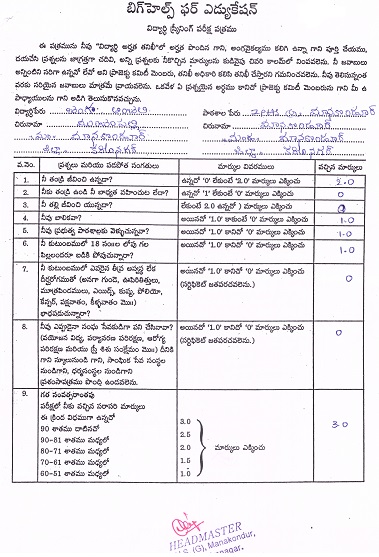 బిగ్‌హెల్ప్ ఫర్ ఎడ్యుకేషన్
విద్యార్థి స్క్రీనింగ్ పరీక్ష పత్రము
ఈ పత్రమును నీవు "విద్యార్థి అర్హత తనిఖీ"లో అర్హత పొందిన గాని, అంగవైకల్యము కలిగి ఉన్నా గాని పూర్తి చేయుము,
దయచేసి ప్రశ్నలను జాగ్రత్తగా చదివి, అన్ని ప్రశ్నలకు నీకొచ్చిన మార్కులను కుడివైపు చివరి కాలములో నింపవలెను. నీ జవాబులు
అన్నింటిని సరిగా ఉన్నవో లేవో అని ప్రాజెక్టు కమిటీ మెంబరు, తనిఖీ అధికారి కలిసి తనిఖీ చేస్తారని గమనించవలెను. నీవు తెలిసినున్నంత
వరకు సరియైన జవాబులు మాత్రమే వ్రాయవలెను. ఒకవేళ ఏ ప్రశ్నయైన అర్థము కానిచో ప్రాజెక్టు కమిటీ మెంబరును గాని మీ ఉ
పాధ్యాయులను గాని అడిగి తెలుసుకొనవచ్చును.
విద్యార్థిపేరు పాఠశాల పేరు మానకొండూర్
చిరునామా చిరునామా మానకొండూర్
మానకొండూర్
జిల్లా కరీంనగర్ జిల్లా కరీంనగర్
వ.నెం. ప్రశ్నలు మరియు పరిచోత సంగతులు మార్కుల వివరములు వచ్చిన మార్కులు
1. నీ తండ్రి జీవించి ఉన్నాడా? ఉన్నచో '0' లేకుంటే 2.0' మార్కులు ఎక్కించు 2.0
2. నీకు తండ్రి ఉండి నీ బాధ్యత వహించుట లేదా? ఉన్నచో '1' లేకుంటే '0' మార్కులు ఎక్కించు 0
3. నీ తల్లి జీవించి యున్నదా? లేకుంటే 2.0 ఉన్నచో ) మార్కులు ఎక్కించు
4. నీవు బాలికవా? అయినచో '1.0 కాకుంటే '0' మార్కులు ఎక్కించు 1.0
5. నీవు ప్రభుత్వ పాఠశాలకు వెళ్ళుచున్నావా? అయినచో '1.0 కానిచో '0' మార్కులు ఎక్కించు 1.0
6. నీ కుటుంబములో 18 సం॥ల లోపు గల
పిల్లలందరూ బడికి పోవుచున్నారా? అయినచో '1.0 కానిచో '0' మార్కులు ఎక్కించు 1.0
7. నీ కుటుంబములో ఎవరైనా తీవ్ర అస్వస్థత లేక
దీర్ఘరోగముతో (అనగా గుండె, ఊపిరితిత్తులు,
మూత్రపిండములు, ఎయిడ్స్, కుష్ఠు, పోలియో,
కేన్సర్, పక్షవాతం, కీళ్ళవాతం మొ॥)
బాధపడుచున్నారా? అయినచో '1.0 కానిచో '0' మార్కులు ఎక్కించు
(సర్టిఫికెట్ జతపరచవలెను.) 0
8. నీవు ఎప్పుడైనా సంఘ సేవకుడిగా పని చేసినావా?
(వయోజన విద్య, పర్యావరణ పరిరక్షణ, ఆరోగ్య
పరిరక్షణ మరియు స్త్రీ శిశు సంక్షేమం మొ॥) దీనికి
గాని స్కూలునుండి గాని, సాంఘిక సేవ సంస్థల
నుండిగాని, ధర్మసంస్థల నుండిగాని
ప్రశంసాపత్రము పొంది ఉండవలెను. అయినచో '1.0 కానిచో '0' మార్కులు ఎక్కించు
(సర్టిఫికెట్ జతపరచవలెను.) 0
9. గత సంవత్సరాంతపు
పరీక్షలో నీకు వచ్చిన సరాసరి మార్కులు
ఈ క్రింద విధముగా ఉన్నచో
90 శాతము దాటినచో 3.0
90-81 శాతము మధ్యలో 2.5
80-71 శాతము మధ్యలో 2.0 మార్కులు ఎక్కించు
70-61 శాతము మధ్యలో 1.5
60-51 శాతము మధ్యలో 1.0
3.0
HEADMASTER
(G), Manakondur,